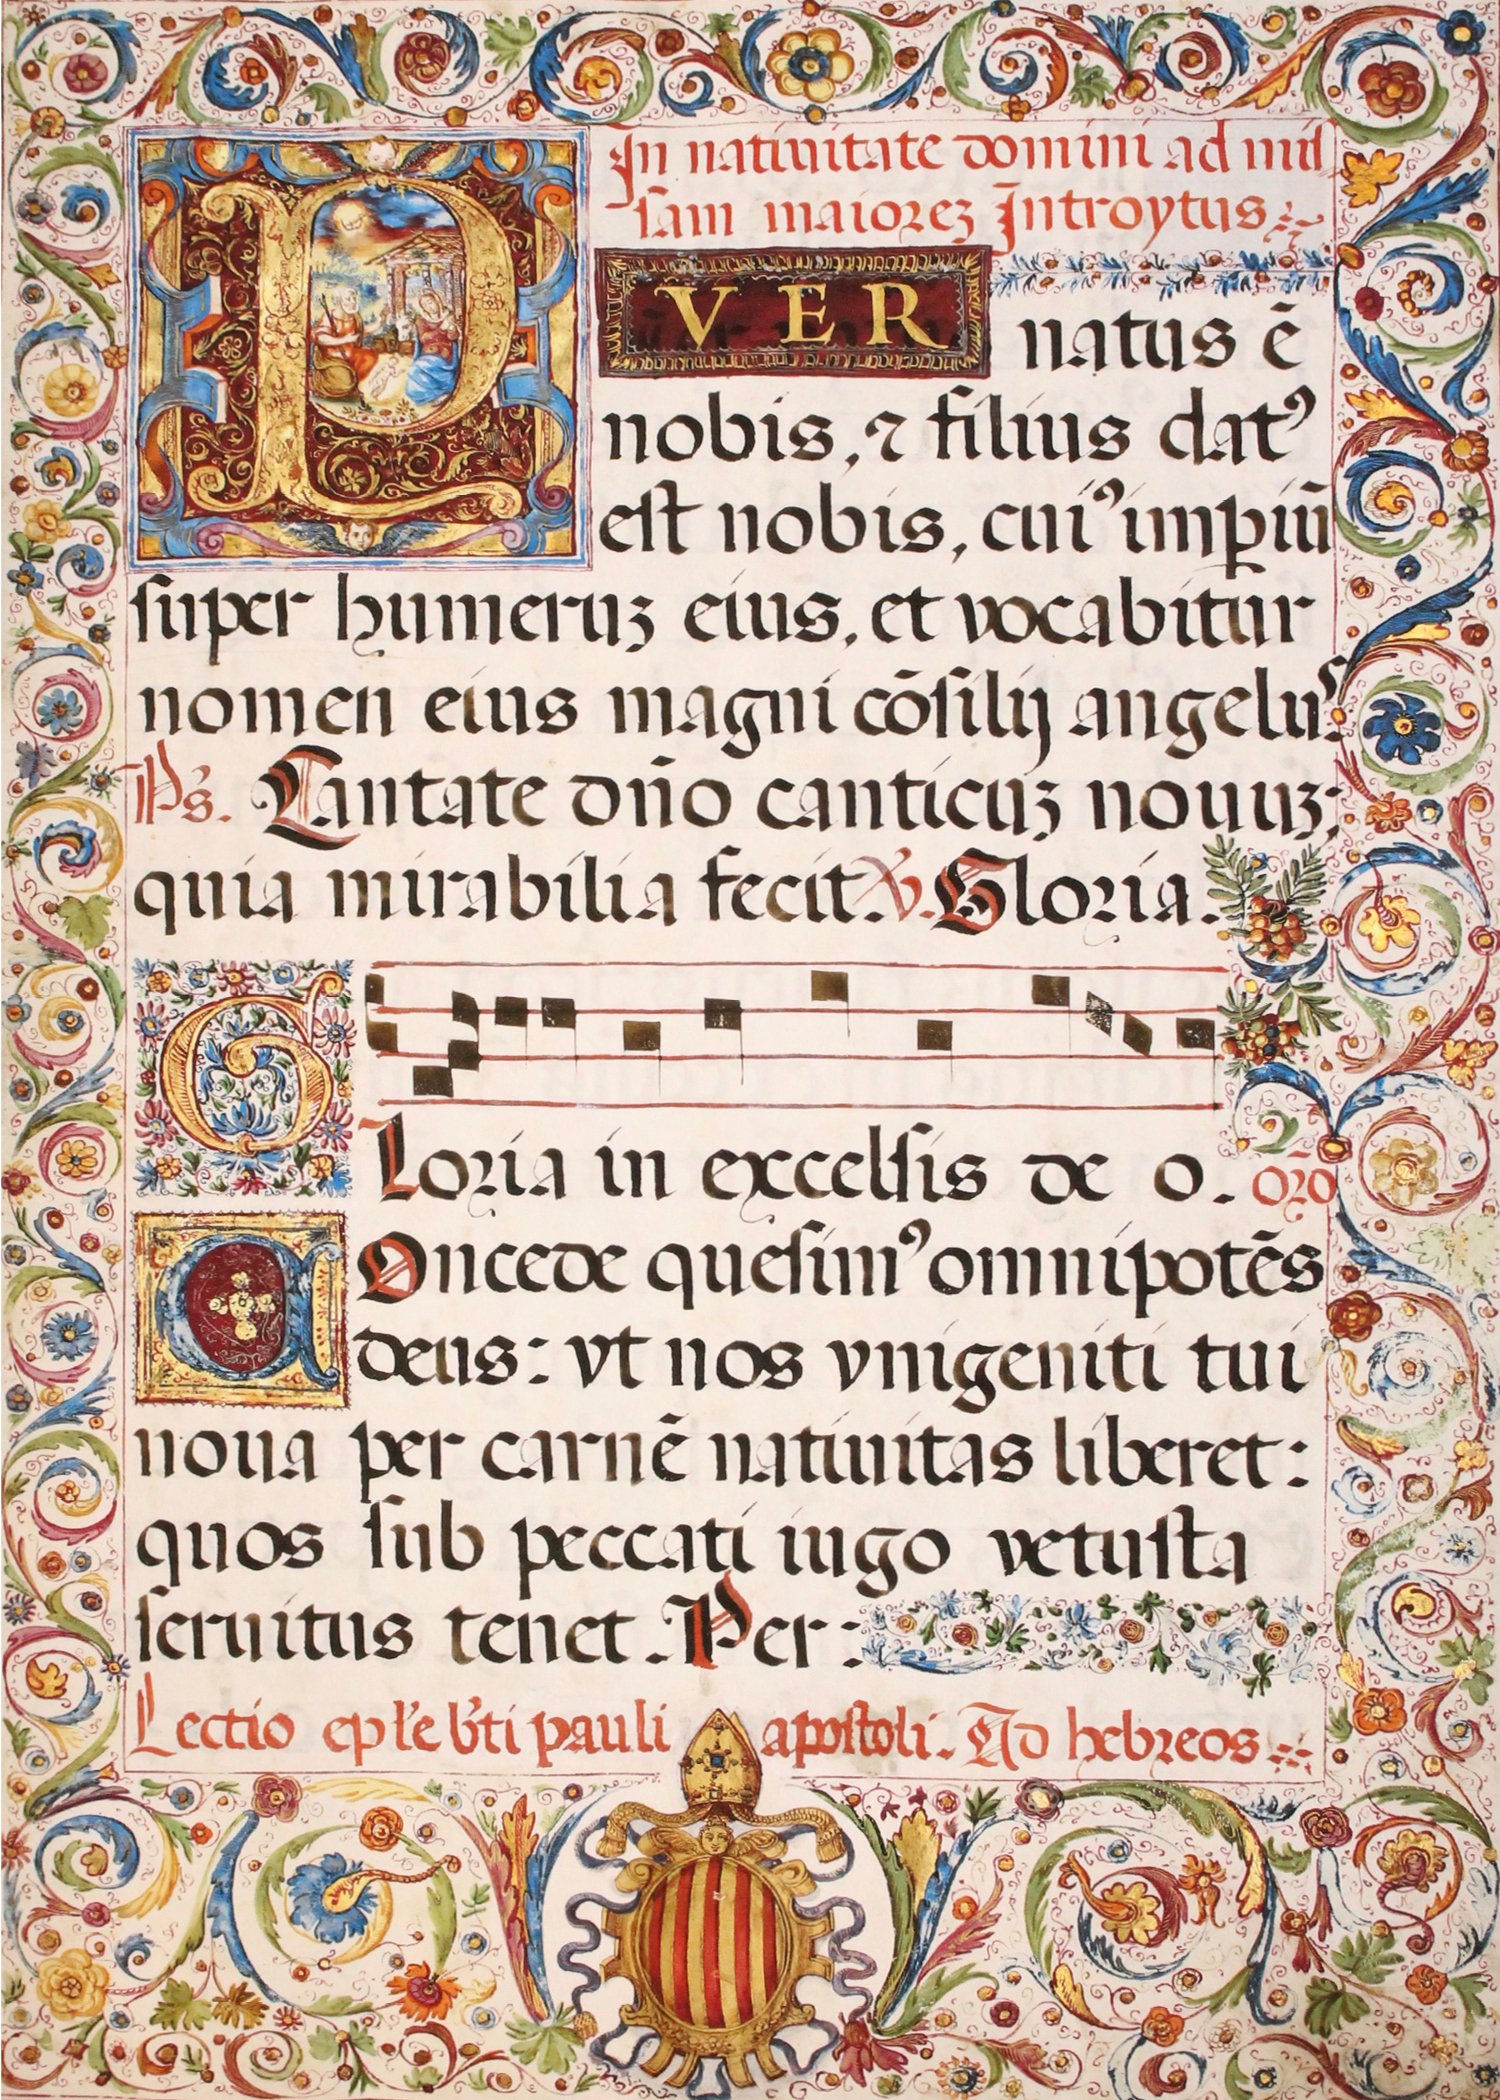 In natiuitate domini ad miſ
ſam maiorez Introytus
PVER natus ē
nobis, ⁊ filius datꝰ
eſt nobis, cuiꝰ imꝑiū
ſuper humeruʒ eius, et vocabitur
nomen eius magni cōſilij angelus:
Ps. Cantate dn̄o canticuʒ nouuʒ:
quia mirabilia fecit. v̓. Gloria.
G
Loria in excelſis de o. oꝛō
COncede queſimꝰ omnipotēs
deus: vt nos vnigeniti tui
noua per carnē natiuitas liberet:
quos ſub peccati iugo vetuſta
ſeruitus tenet. Per:
Lectio epl̄e bt̄i pauli apoſtoli. Ad hebꝛeos